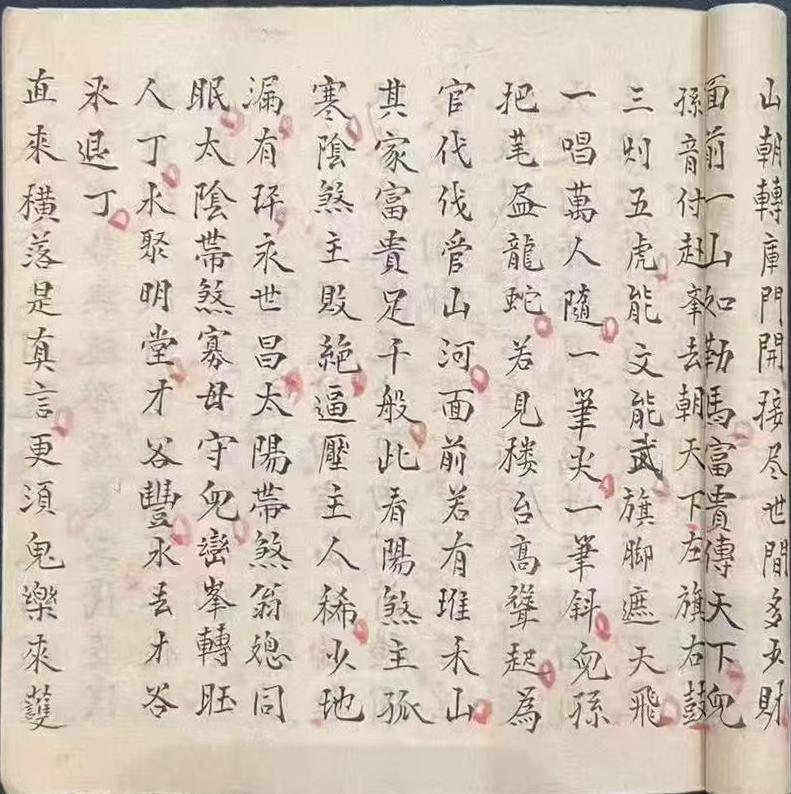 山朝轉庫門開接尽世間多大財
面前一山如勒馬富貴傳天下兒
孫音付赶峯去朝天下左旗右鼓
三则五虎能文能武旗脚遮天飛
一唱萬人隨一筆尖一筆斜兒孫
把筆益龍蛇若見楼台高聳起為
官伐伐管山河面前若有堆禾山
其家富貴足千般此看陽煞主孤
寒陰煞主敗絕逼壓主人稀少地
漏有砰永世昌太陽带煞翁媳同
眠太陰带煞寡母守兒巒峯轉旺
人丁水聚明堂才谷豐水去才谷
不退丁
直來橫落是真言更須鬼樂來護